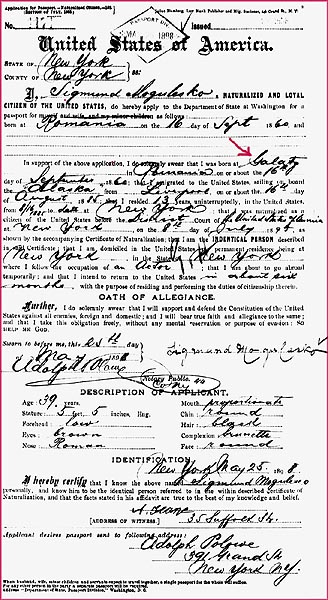 Application for Passport—Naturalized Citizen.
Issued
United States of America.
STATE OF New York
COUNTY OF New York } ss:
I, Sigmund Mogulesko, A NATURALIZED AND LOYAL
CITIZEN OF THE UNITED STATES, do hereby apply to the Department of State at Washington for a
passport for myself and wife, and my minor children as follows:
born at Romania on the 16 day of Sept 1860 and
In support of the above application, I do solemnly swear that I was born at Galatz
in Rumania on or about the 16th
day of September 1860; that I emigrated to the United States, sailing on board
the Alaska from Liverpool on or about the
day of August 188; that I resided 13 years, uninterruptedly, in the United
States, from 1885 to date at New York; that I was naturalized as a
citizen of the United States before the District Court of
at New York on the 8th day of July 189
as shown by the accompanying Certificate of Naturalization; that I am the IDENTICAL PERSON described
in said Certificate; that I am domiciled in the United States, my permanent residence being at
New York in the State of New York
where I follow the occupation of an Actor; that I am about to go abroad
temporarily; and that I intend to return to the United States in about six
months, with the purpose of residing and performing the duties of citizenship therein.
OATH OF ALLEGIANCE.
Further, I do solemnly swear that I will support and defend the Constitution of the United
States against all enemies, foreign and domestic; and I will bear true faith and allegiance to the same;
and that I take this obligation freely, without any mental reservation or purpose of evasion: SO
HELP ME GOD.
Sworn to before me, this 25th
day of May 1898
Sigmund Mogulesko
Adolph
Notary Public.
DESCRIPTION OF APPLICANT.
Age: 39, years. Mouth: proportionate
Stature: 5 feet, 5 inches, Eng. Chin: round
Forehead: low Hair: black
Eyes: brown Complexion: brunette
Nose: Roman Face: round
IDENTIFICATION.
New York May 25 1898
I hereby certify that I know the above named Sigmund Mogulesko
personally, and know him to be the identical person referred to in the within described Certificate of
Naturalization, and that the facts stated in his affidavit are true to the best of my knowledge and belief.
[ADDRESS OF WITNESS] 35 Suffolk St.
Applicant desires passport sent to following address:
Adolph
391 Grand St
New York N.Y.